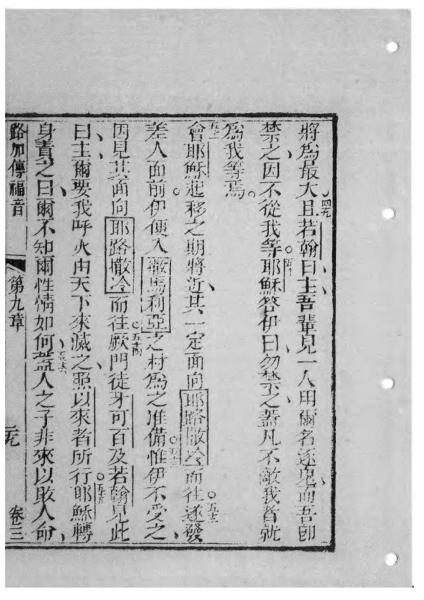 將為最大且若翰曰主吾輩見一人用爾名逐鬼而吾即
禁之因不從我等耶穌答伊曰勿禁之蓋凡不敵我者就
為我等焉
會耶穌起移之期將近其一定面向耶路撒冷而往遂發
差人面前伊便入撒馬利亞之村為之准備惟伊不受之
因見其面向耶路撒冷而往厥門徒牙可百及若翰見此
曰主爾要我呼火由天下來滅之照以來者所行耶穌轉
身責之曰爾不知爾性情如何蓋人之子非來以敗人命
路加傳福音 第九章 卷三